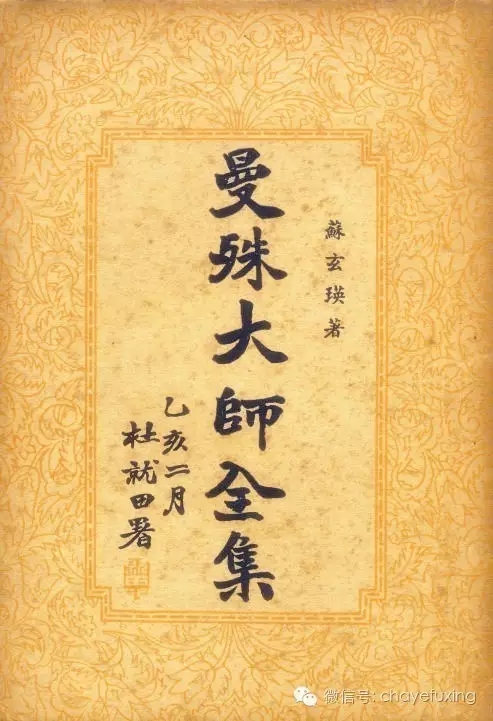 蘇玄瑛著
曼殊大師全集
乙亥二月
杜就田署
微信号: chayefuxing